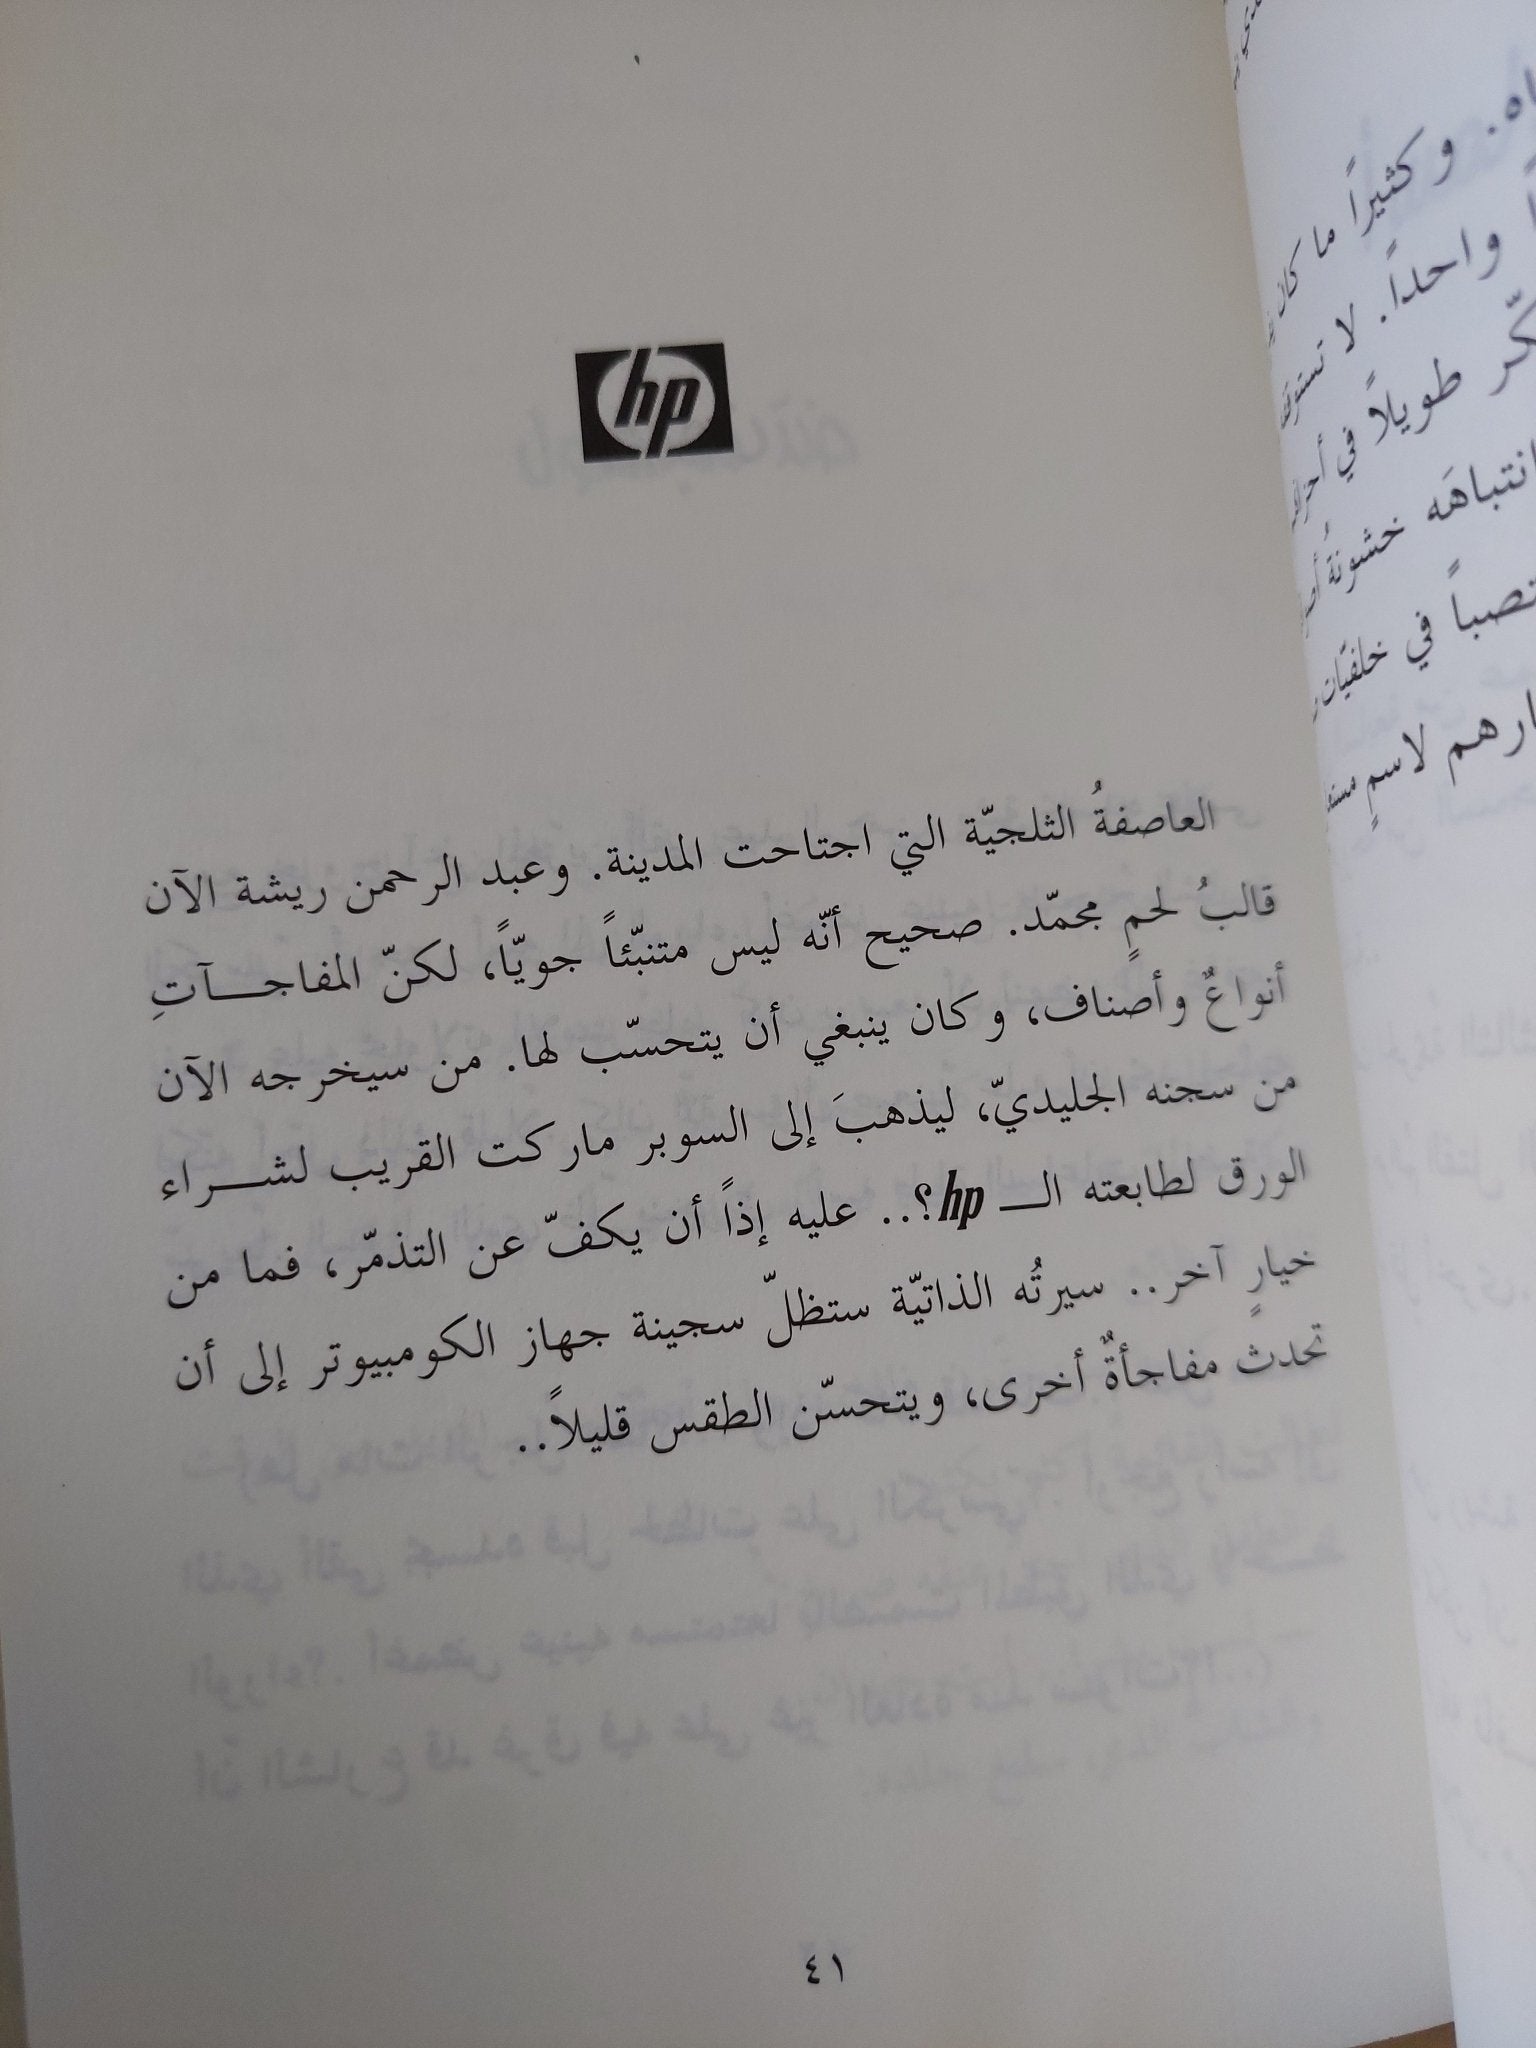 hp
العاصفةُ الثلجيّة التي اجتاحت المدينة. وعبد الرحمن ريشة الآن
قالبُ لحمٍ مجمّد. صحيح أنّه ليس متنبّئاً جويّاً، لكنّ المفاجـــآتِ
أنواعٌ وأصناف، وكان ينبغي أن يتحسّب لها. من سيخرجه الآن
من سجنه الجليديّ، ليذهبَ إلى السوبر ماركت القريب لشـــراء
الورق لطابعته الــ hp؟.. عليه إذاً أن يكفّ عن التذمّر، فما من
خيارٍ آخر.. سيرتُه الذاتيّة ستظلّ سجينة جهاز الكومبيوتر إلى أن
تحدث مفاجأةٌ أخرى، ويتحسّن الطقس قليلاً..
٤١
وكثيراً ما كان
واحداً. لا
طويلاً في
انتباهَه خشونةُ
في خلفيّات
لاسمٍ